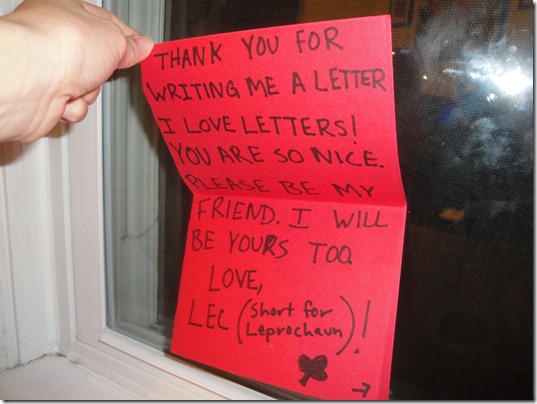 THANK YOU FOR
WRITING ME A LETTER
I LOVE LETTERS!
YOU ARE SO NICE.
PLEASE BE MY
FRIEND. I WILL
BE YOURS TOO.
LOVE,
LEC (Short for
Leprechaun)!